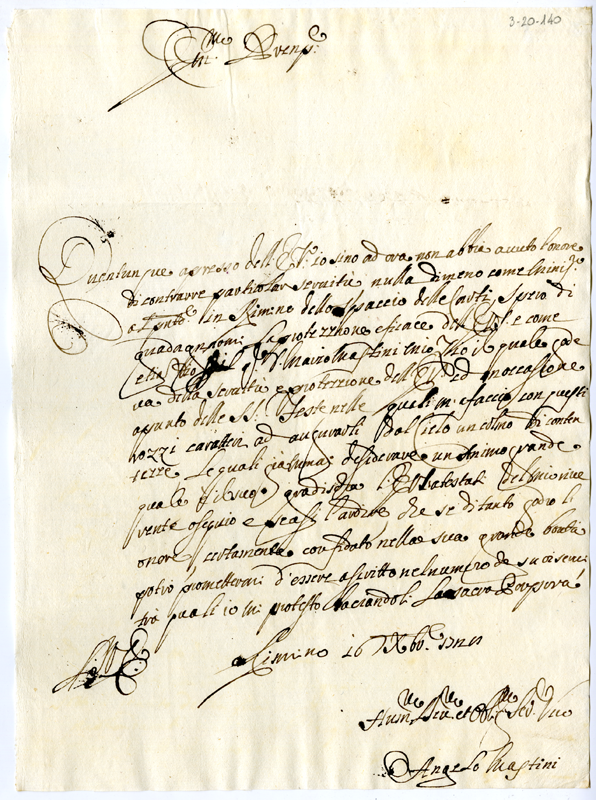 3-20-140
Em.mo Rever.
Quantunque apresso dell'E. V. io sino ad ora non abbia avuto l'onore
di contrarre particolar servitù nulla di meno come Minis.
in Rimino dello spaccio delle Carti spero di
guadagnarmi la protezzione eficace dell' E. V. e come
il quale gode
della servitù e protezione dell' E. V. ed in occasione
apunto delle SS. Feste nelle quali mi efaccio con questi
rozzi caratteri ad augurarli dal Cielo un colmo di conten
tezze le quali desiderare un Animo grande
quale è il suo gradischa l' E. V. atestati del mio rive
rente osequio e l'ardire che se di tanto farò li
onore certamente confidato nella sua grande bontà
potrò promettermi d'essere ascritto nel numero de suoi servi
trà quali io mi protesto baciandoli la sacra Porpora
Rimino 16 Xbre
Hum.mo Div.mo et Obb.mo Ser. Vro
Angelo Mastini